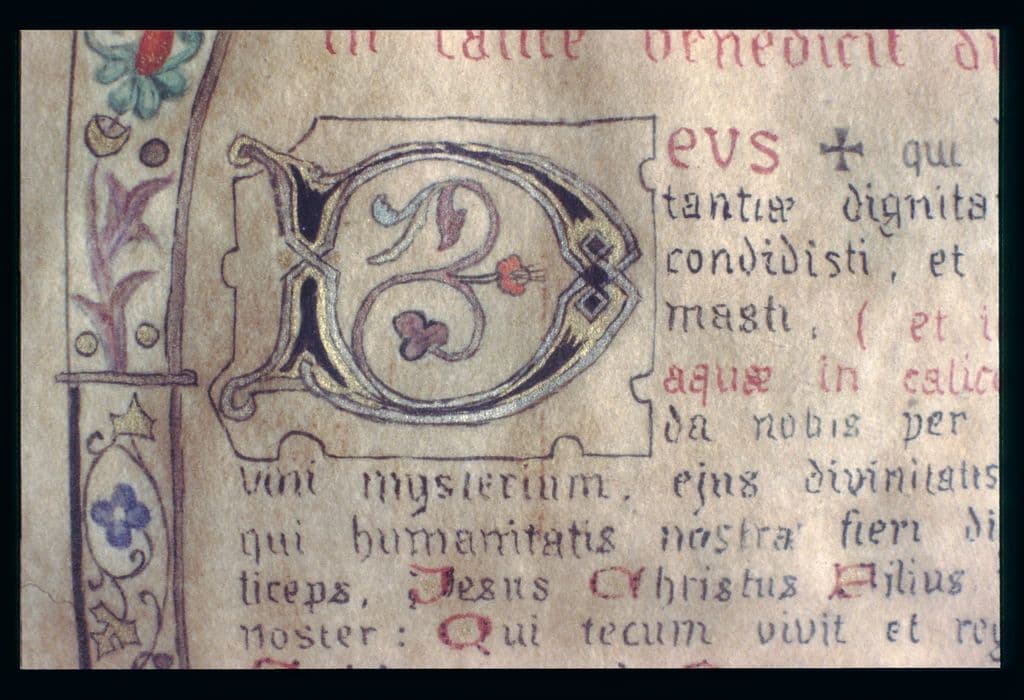 in calice benedicit di
Devs ✠ qui
tantiæ dignita
condidisti, et
masti, ( et i
aquæ in calic
da nobis per
vini mysterium, ejus divinitatis
qui humanitatis nostræ fieri di
ticeps, Jesus Christus Filius
noster: Qui tecum vivit et reg